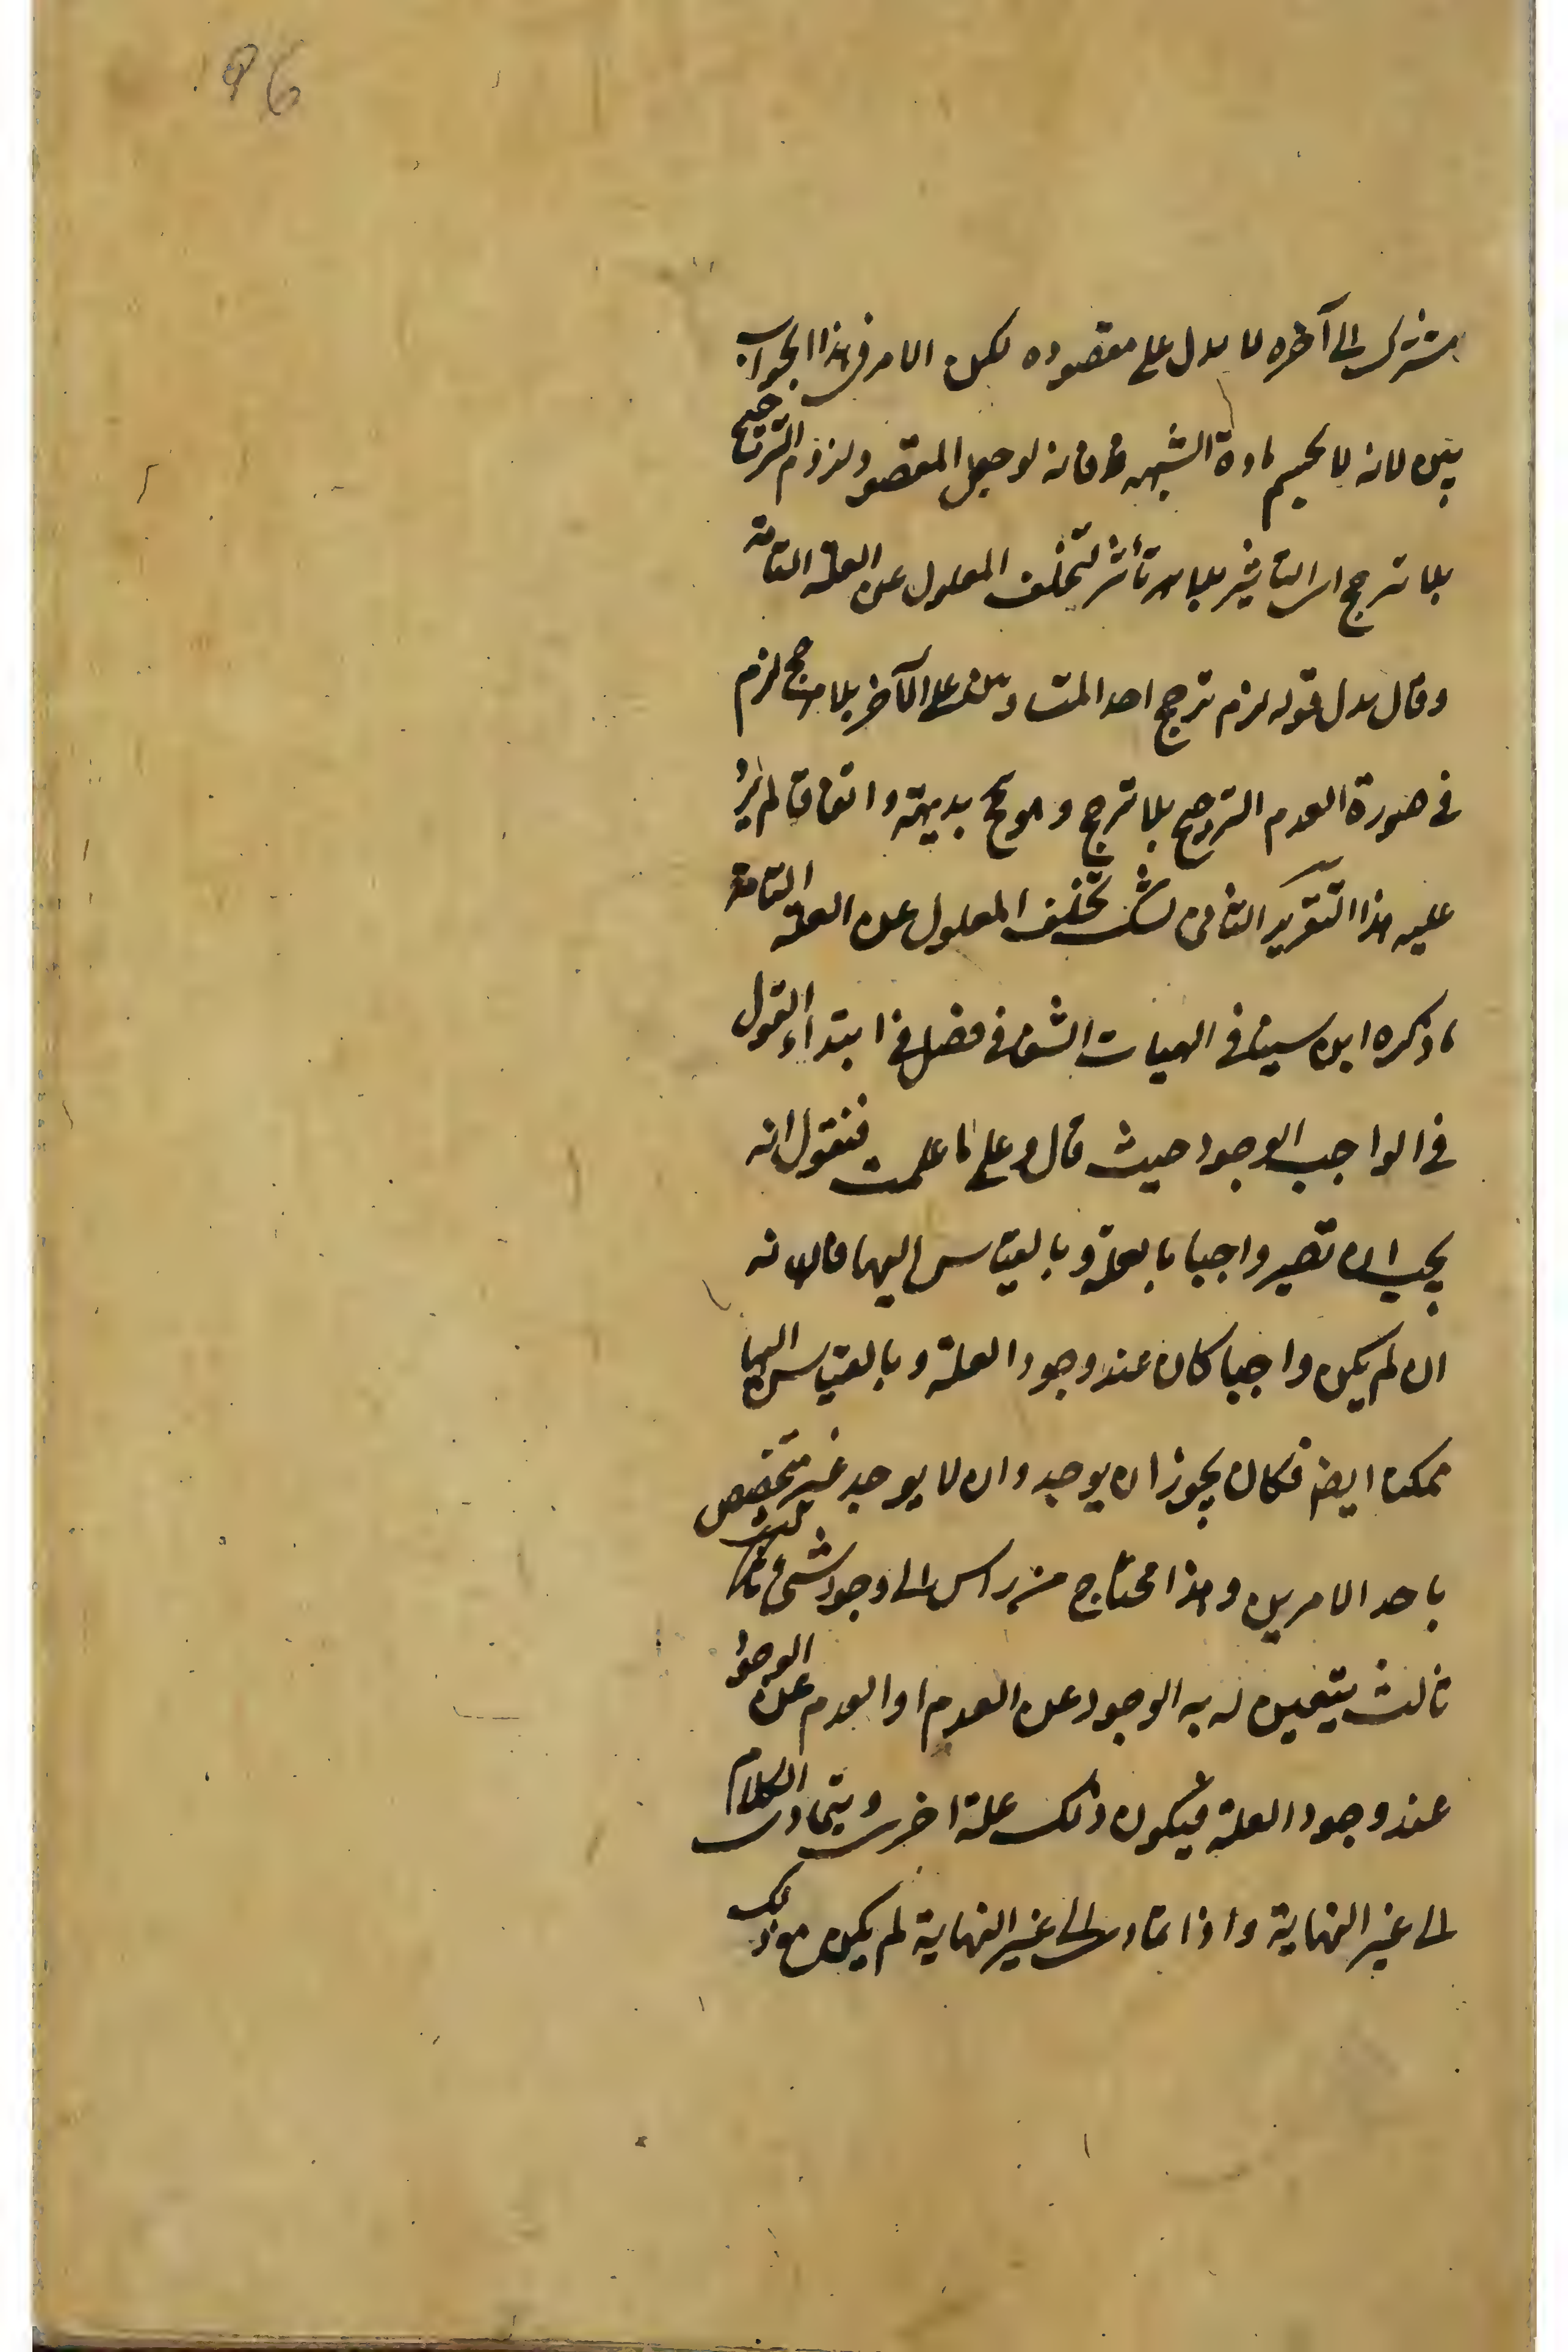 96
مشترك الى آخره لا يدل على مقصوده لكن الامر فى هذا الجواب
بين لانه لا يحسم مادة الشبهة فانه لو جعل المقصود لزوم الترجيح
بلا ترجح اى التاثير بلا تأثر لتخلف المعلول عن العلة التامة
وقال بدل قوله لزم ترجح احد المتساويين على الآخر بلا مرجح لزم
فى صورة العدم الترجيح بلا ترجح وهو مح بديهة واتفاقا لم يرد
عليه هذا التقرير الثانى لتخلف المعلول عن العلة التامة
ما ذكره ابن سينا فى الهيات الشفا فى فصل فى ابتداء القول
فى الواجب الوجود حيث قال و على ما علمت فنقول انه
يجب ان تصير واجبا بالعلة و بالقياس اليها فانه
ان لم يكن واجبا كان عند وجود العلة و بالقياس اليها
ممكنا ايضا فكان يجوز ان يوجد وان لا يوجد غير متخصص
باحد الامرين وهذا محتاج من راس الى وجود شىء ثالث
ثالث يتعين له به الوجود عن العدم او العدم عن الوجود
عند وجود العلة فيكون ذلك علة اخرى ويتمادى الكلام
الى غير النهاية واذا تمادى الى غير النهاية لم يكن مع ذلك